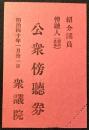 紹介議員
傍聴人
公衆傍聴券
明治四十年一月廿一日
衆議院